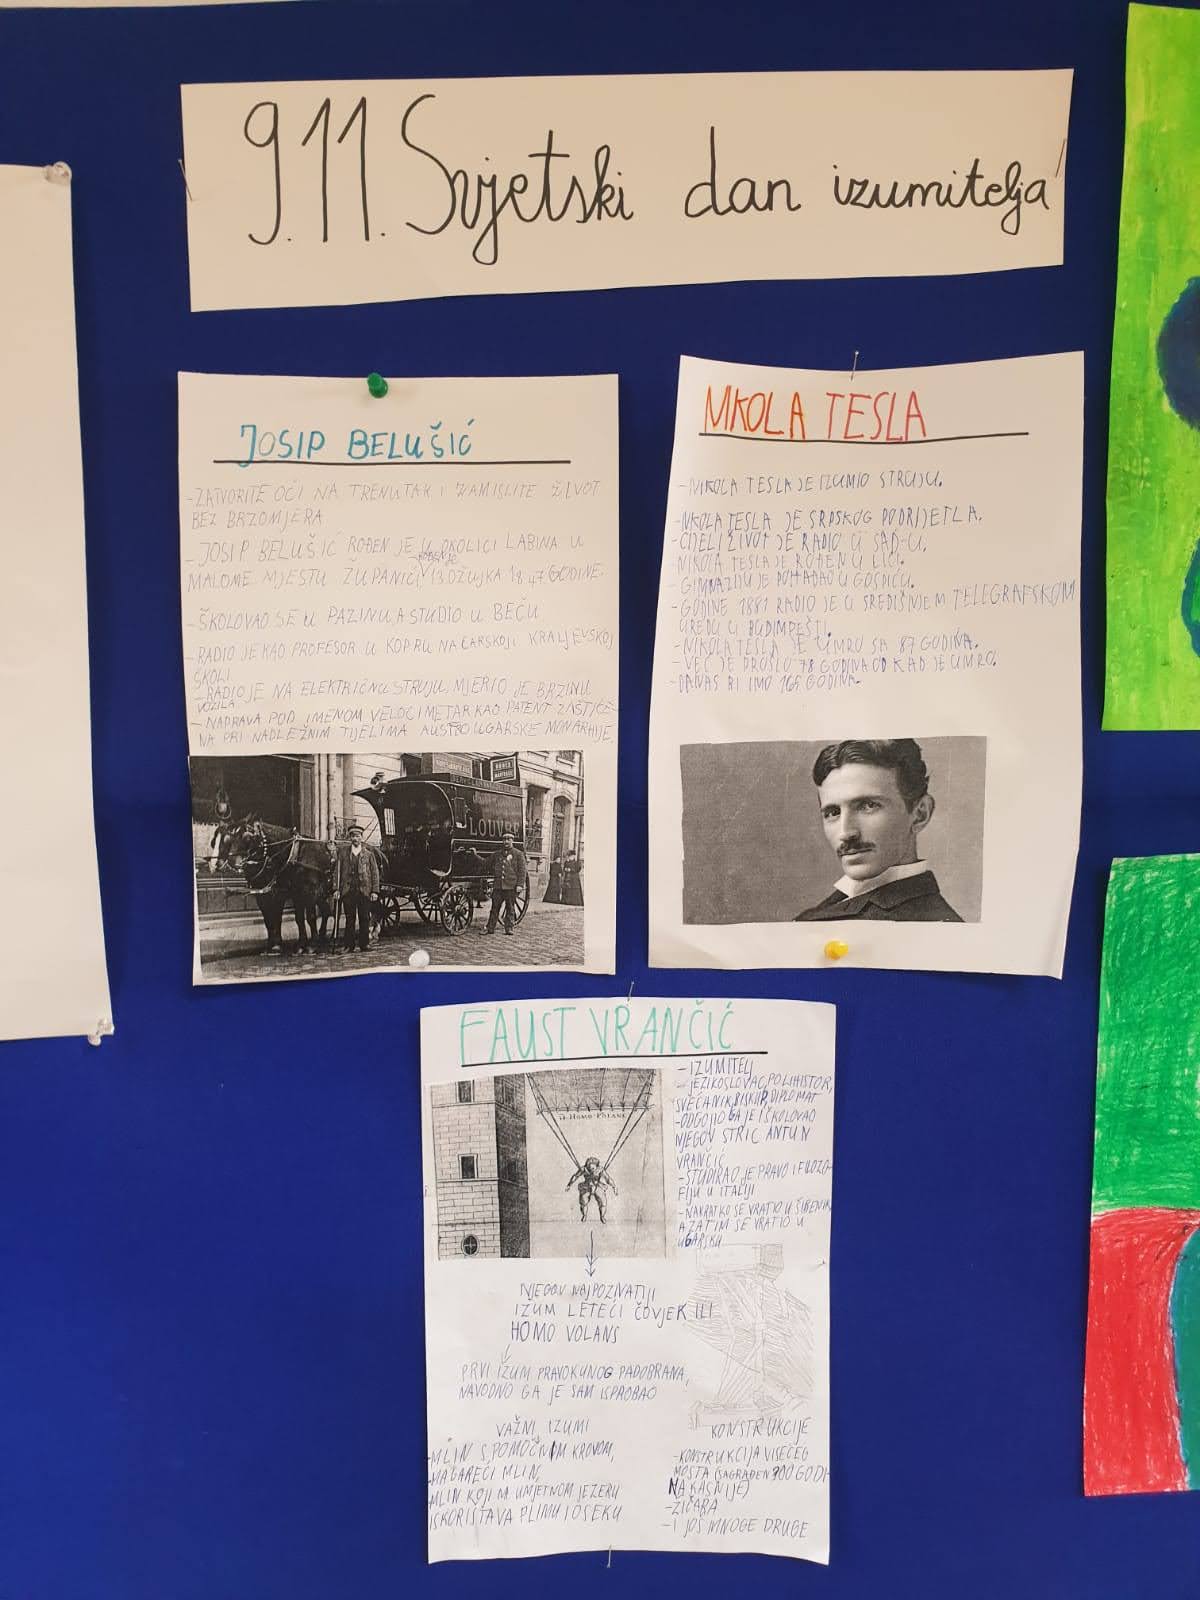 9.11. Svjetski dan izumitelja
JOSIP BELUŠIĆ
-ZATVORITE OČI NA TRENUTAK I ZAMISLITE ŽIVOT
BEZ BRZOMJERA
-JOSIP BELUŠIĆ ROĐEN JE U OKOLICI LABINA U
MALOME MJESTU ŽUPANIĆI ROĐEN JE 13.OŽUJKA 1847 GODINE.
-ŠKOLOVAO SE U PAZINU, A STUDIO U BEČU
-RADIO JE KAO PROFESOR U KOPRU NA CARSKOJ I KRALJEVSKOJ
ŠKOLI
-RADIO JE NA ELEKTRIČNU STRUJU, MJERIO JE BRZINU
VOZILA
-NAPRAVA POD IMENOM VELOCIMETAR KAO PATENT ZAŠTIĆE-
NA PRI NADLEŽNIM TIJELIMA AUSTROUGARSKE MONARHIJE.
LOUVRE
NIKOLA TESLA
-NIKOLA TESLA JE IZUMIO STRUJU.
-NIKOLA TESLA JE SRPSKOG PODRIJETLA.
-CIJELI ŽIVOT JE RADIO U SAD-U.
NIKOLA TESLA JE ROĐEN U LICI.
-GIMNAZIJU JE POHAĐAO U GOSPIĆU.
-GODINE 1881 RADIO JE U SREDIŠNJEM TELEGRAFSKOM
UREDU U BUDIMPEŠTI.
-NIKOLA TESLA JE UMRO SA 87 GODINA.
-VEĆ JE PROŠLO 78 GODINA OD KAD JE UMRO.
-DANAS BI IMO 165 GODINA.
FAUST VRANČIĆ
-IZUMITELJ
-JEZIKOSLOVAC, POLIHISTOR,
SVEĆANIK, BISKUP, DIPLOMAT
-ODGOJIO GA JE I ŠKOLOVAO
NJEGOV STRIC ANTUN
VRANČIĆ
-STUDIRAO JE PRAVO I FILOZO-
FIJU U ITALIJI
-NAKRATKO SE VRATIO U ŠIBENIK,
A ZATIM SE VRATIO U
UGARSKU
HOMO VOLANS
NJEGOV NAJPOZNATIJI
IZUM LETEĆI ČOVJEK ILI
HOMO VOLANS
PRVI IZUM PRAVOKUNOG PADOBRANA,
NAVODNO GA JE SAM ISPROBAO
VAŽNI IZUMI
-MLIN S POMIČNIM KROVOM,
-MAGAREĆI MLIN,
MLIN KOJI NA UMJETNOM JEZERU
ISKORISTAVA PLIMU I OSEKU
KONSTRUKCIJE
-KONSTRUKCIJA VISEĆEG
MOSTA (SAGRAĐEN 300 GODI-
NA KASNIJE)
-ŽIČARA
-I JOŠ MNOGE DRUGE